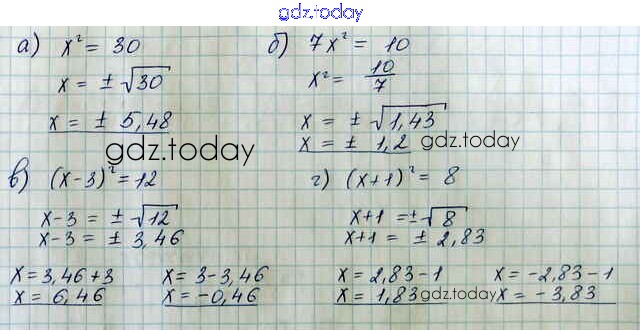 gdz.today
а) x² = 30
x = ± √30
x = ± 5,48
б) 7x² = 10
x² = 10/7
x = ± √1,43
x = ± 1,2
gdz.today
gdz.today
в) (x-3)² = 12
x-3 = ± √12
x-3 = ± 3,46
x = 3,46+3
x = 6,46
x = 3-3,46
x = -0,46
г) (x+1)² = 8
x+1 = ± √8
x+1 = ± 2,83
x = 2,83-1
x = 1,83
x = -2,83-1
x = -3,83
gdz.today